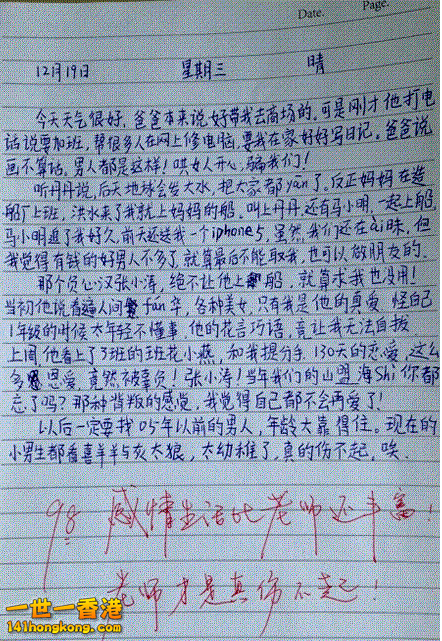 Date.
Page.
12月19日 星期三 晴
今天天气很好,爸爸本来说好带我去商场的,可是刚才他打电
话说要加班,帮很多人在网上修电脑,要我在家好好写日记。爸爸说
画不算话,男人都是这样!哄女人开心,骗我们!
听丹丹说,后天地球会发大水,把大家都yān了,反正妈妈在造
船厂上班,洪水来了我就上妈妈的船,叫上丹丹,还有马小明,一起上船,
马小明追了我好久,前天还送我一个iphone5,虽然我们还在ài昧,但
我觉得有钱的好男人不多了,就算最后不能取我,也可以做朋友的。
那个负心汉张小涛,绝不让他上船,就算求我也没用!
当初他说看遍人间fán华,各种美女,只有我是他的真爱,怪自己
1年级的时候太年轻不懂事,他的花言巧语,竟让我无法自拔
上周他看上了3班的班花小燕,和我提分手,130天的恋爱,这么
多恩爱,竟然被辜负!张小涛!当年我们的山盟海Shi你都
忘了吗?那种背叛的感觉,我觉得自己都不会再爱了!
以后一定要找05年以前的男人,年龄大靠得住。现在的
小男生都看喜羊羊与灰太狼,太幼稚了,真的伤不起,唉.
98 感情生活比老师还丰富!
老师才是真伤不起!
一世一香港
141hongkong.com